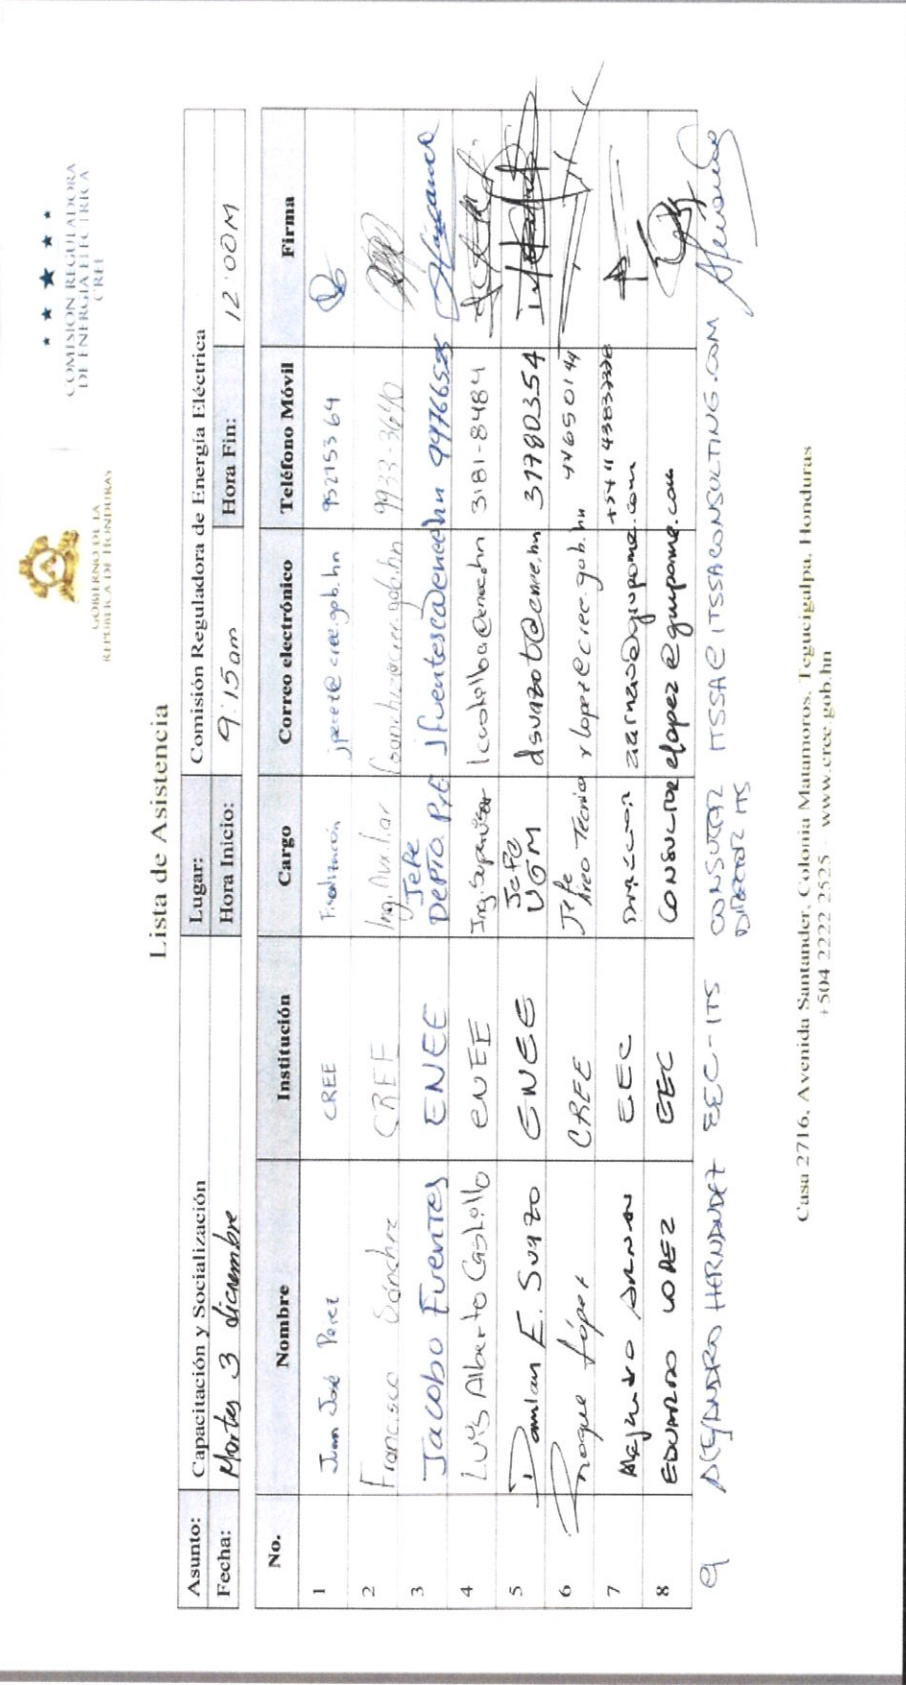 GOBIERNO DE LA
REPÚBLICA DE HONDURAS
COMISIÓN REGULADORA
DE ENERGÍA ELÉCTRICA
CREE
Lista de Asistencia
Asunto: Capacitación y Socialización Lugar: Comisión Reguladora de Energía Eléctrica
Fecha: Martes 3 diciembre Hora Inicio: 9:15am Hora Fin: 12:00M
No. Nombre Institución Cargo Correo electrónico Teléfono Móvil Firma
1 Juan José Perez CREE Fiscalización jperez@cree.gob.hn 95275364
2 Francisco Sánchez CREE Ing. Auxiliar fsanchez@cree.gob.hn 9933-3640
3 Jacobo Fuentes ENEE Jefe DEPTO. PrE jfuentesc@enee.hn 99766525
4 Luis Alberto Castillo ENEE Ing. Supervisor lcastilloa@enee.hn 3181-8484
5 Damian E. Suazo ENEE Jefe UGM dsuazot@enee.hn 31780354
6 Roque López CREE Jefe Area Tecnica rlopez@cree.gob.hn
7 Alejandro Arnau EEC @grupome.com
8 EDUARDO LOPEZ EEC CONSULTOR elopez@grupome.com
9 ALEJANDRO HERNANDEZ EEC-ITS CONSULTOR DIRECTOR ITS ITSSA@ITSSACONSULTING.COM
Casa 2716, Avenida Santander, Colonia Matamoros, Tegucigalpa, Honduras
+504 2222 2525 www.cree.gob.hn